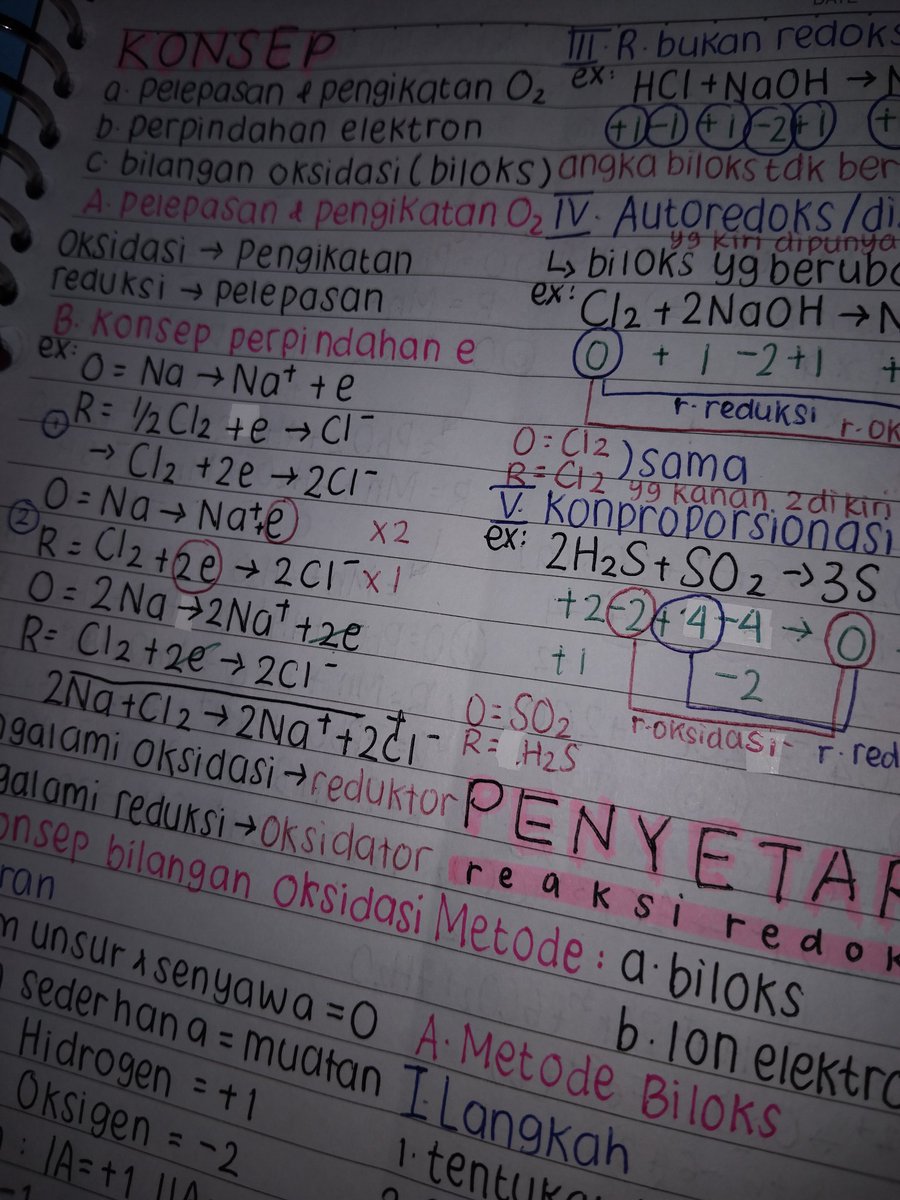 KONSEP
a. pelepasan & pengikatan O2
b. perpindahan elektron
c. bilangan oksidasi (biloks)
A. pelepasan & pengikatan O2
Oksidasi → pengikatan
reduksi → pelepasan
B. Konsep perpindahan e
ex:
O = Na → Na⁺ + e
① R = ½ Cl2 + e → Cl⁻
→ Cl2 + 2e → 2Cl⁻
② O = Na → Na⁺ + e x2
R = Cl2 + 2e → 2Cl⁻ x1
O = 2Na → 2Na⁺ + 2e
R = Cl2 + 2e → 2Cl⁻
+
2Na + Cl2 → 2Na⁺ + 2Cl⁻
galami oksidasi → reduktor
galami reduksi → oksidator
onsep bilangan oksidasi
ran
unsur & senyawa = 0
sederhana = muatan
Hidrogen = +1
Oksigen = -2
: IA = +1 IIA
III. R. bukan redoks
ex: HCl + NaOH → N
+1 -1 +1 -2 +1 +
angka biloks tdk ber
IV. Autoredoks/di
yg kiri dipunya
↳ biloks yg beruba
ex: Cl2 + 2NaOH → N
0 + 1 -2 +1 +
r. reduksi
r. ok
O = Cl2 ) sama
R = Cl2
yg kanan 2 di kiri
V. Konproporsionasi
ex: 2H2S + SO2 → 3S
+2 -2 +4 -4 → 0
+1 -2
r. oksidasi
r. red
O = SO2
R = H2S
PENYETAR
reaksi redok
Metode : a. biloks
b. Ion elektro
A. Metode Biloks
I. Langkah
1. tentuka